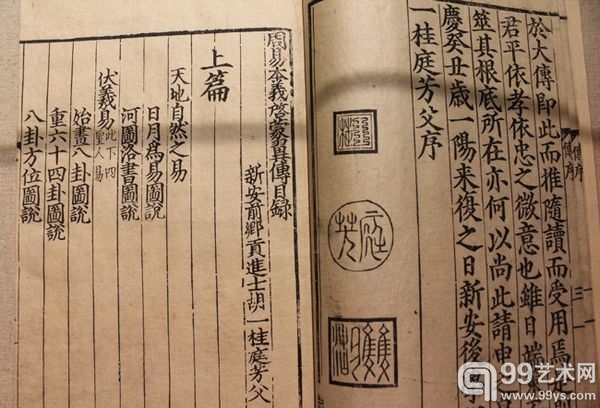 於大傳即此而推隨讀而受用焉
君平依孝依忠之微意也雖曰端
筮其根底所在亦何以尚此請申
慶癸丑歲一陽来復之日新安後
一桂庭芳父序
庭芳
傳序
周易本義啓蒙翼傳目録
新安前鄉貢進士胡 一桂 庭芳父
上篇
天地自然之易
日月為易圖說
河圖洛書圖說
伏羲易 此下四聖人易
始畫八卦圖說
重六十四卦圖說
八卦方位圖說
99艺术网
www.99ys.com